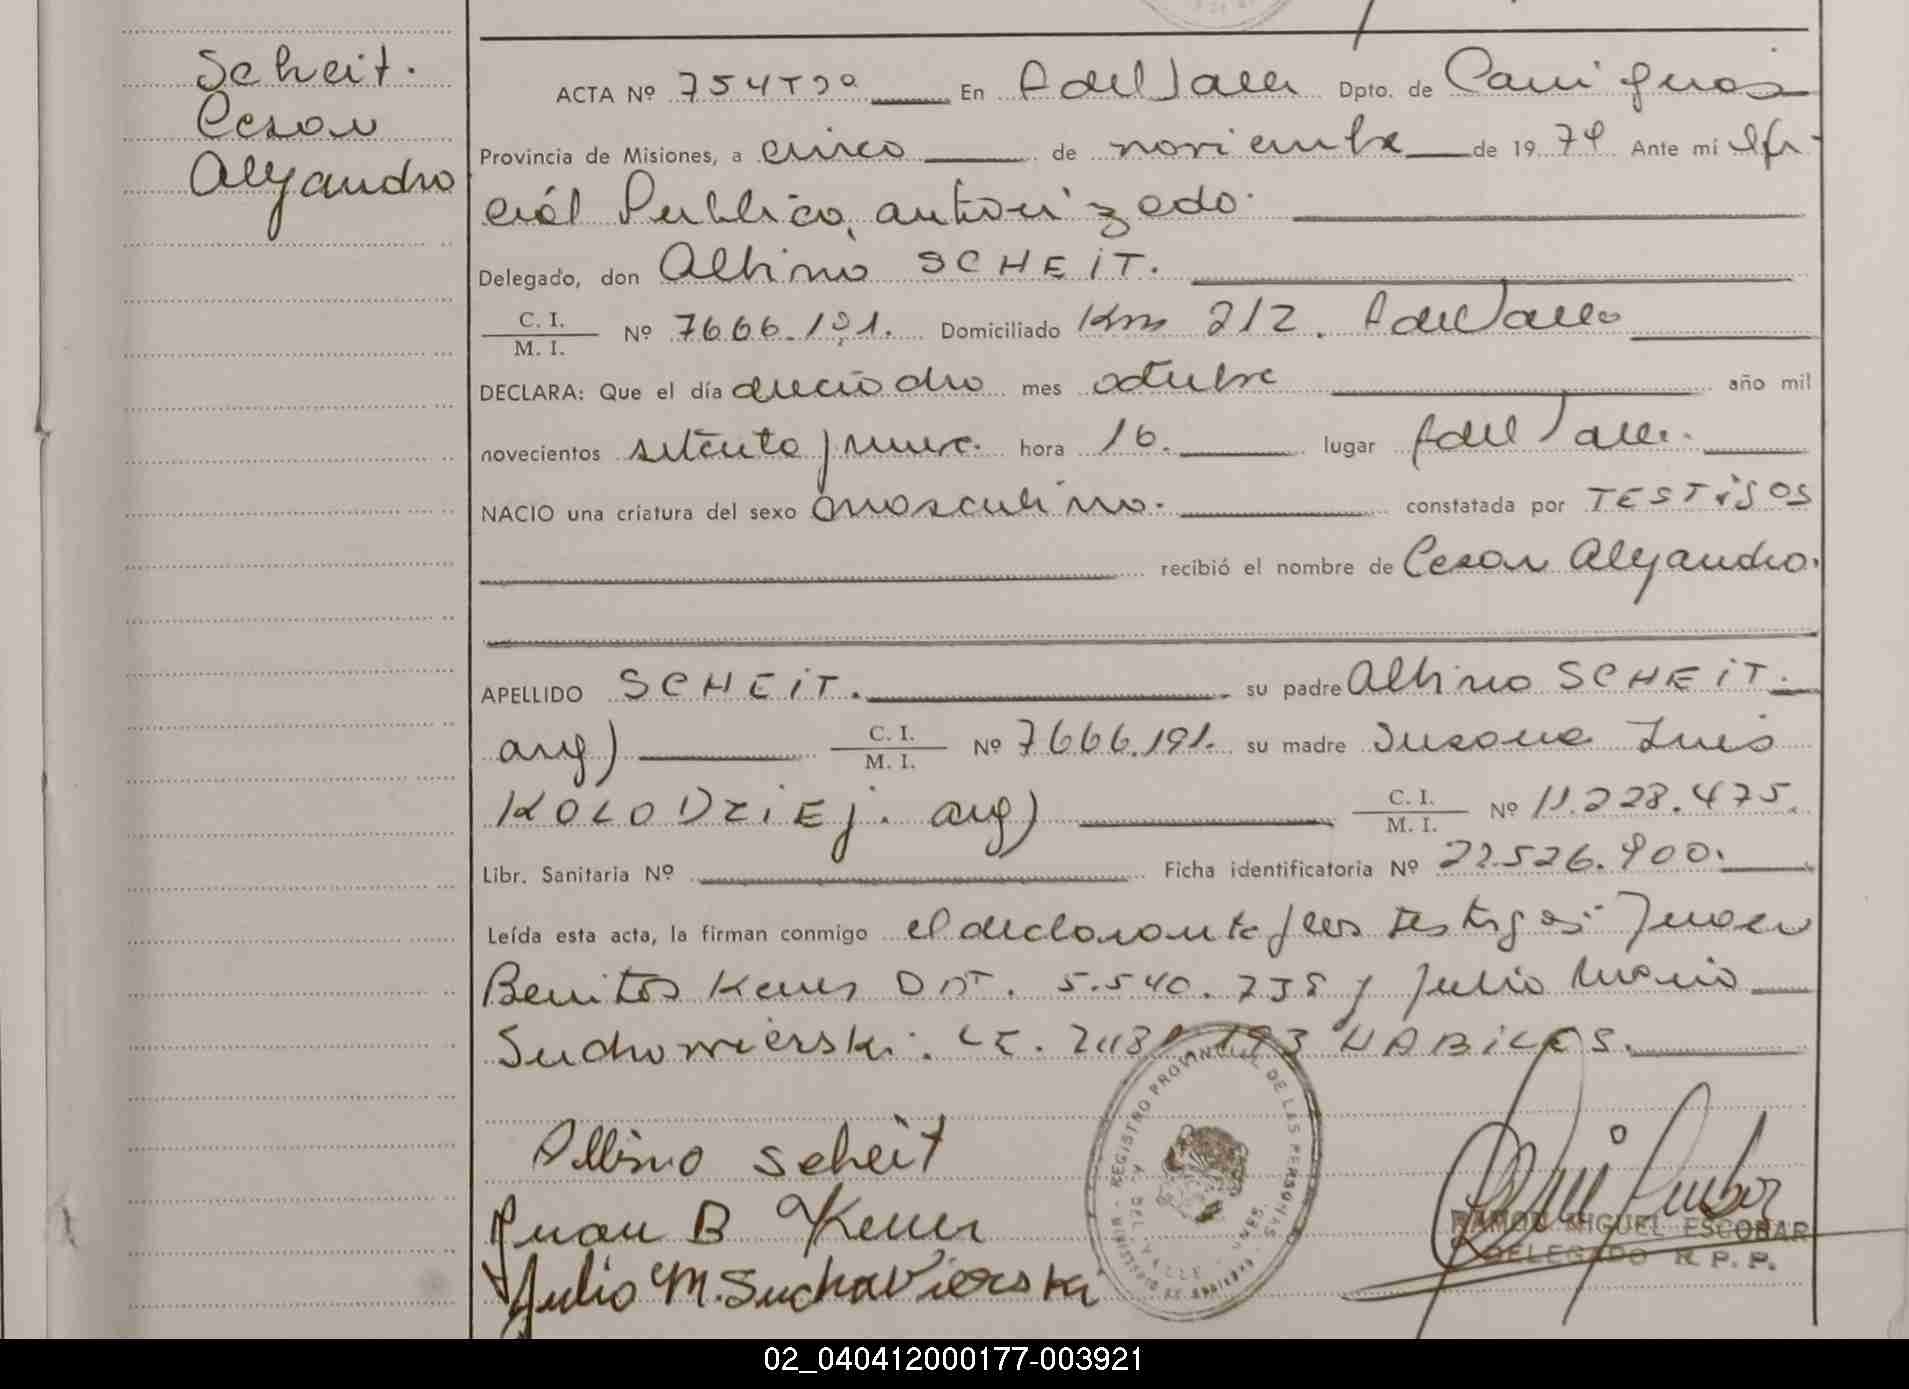 Scheit.
Cesar
Alejandro
ACTA Nº 754 Tº2º En A del Valle Dpto. de Cainguas
Provincia de Misiones, a cinco de noviembre de 1974 Ante mi Ofi-
cial Publico, autorizado.
Delegado, don Albino SCHEiT.
C. I.
M. I. Nº 7666.191. Domiciliado Km 212. A del Valle
DECLARA: Que el día dieciocho mes octubre año mil
novecientos setenta y nueve. hora 16. lugar A del Valle.
NACIO una criatura del sexo masculino. constatada por TESTiGOS
recibió el nombre de Cesar Alejandro.
APELLIDO SCHEiT. su padre Albino SCHEiT.
arg) C. I.
M. I. Nº 7666.191. su madre Susana Ines
KOLODZiEj. arg) C. I.
M. I. Nº 11.228.475.
Libr. Sanitaria Nº Ficha identificatoria Nº 22.526.900.
Leída esta acta, la firman conmigo el declarante y los testigos: Juan
Benitos Kener DNI. 5.540.738 y Julio Mario
Suchowierski. LE. 193 HABiLES.
Albino Scheit
Juan B Kener
Julio M. Suchavierski
REGISTRO PROVINCIAL DE LAS PERSONAS
RAMON MIGUEL ESCOBAR
DELEGADO R.P.P.
02_040412000177-003921